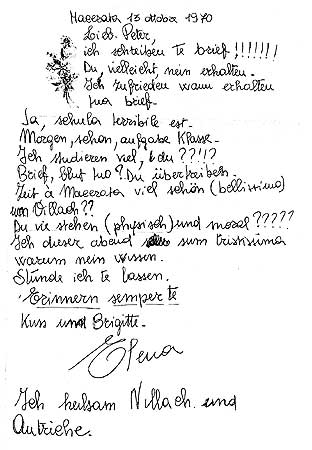 Macerata 13 otober 1970
Lieb. Peter,
ich schreiben te brief !!!!!!!
Du, vielleicht, nein erhalten.
Ich zufrieden wann erhalten
tuo brief.
Ja, schula terribile est.
Morgen, schon, aufgabe Klasse.
Ich studieren viel, e du ??!!?
Brief, tuo? Du übertreiben.
Zeit à Macerata viel schön (bellissimo)
von Villach??
Du vie stehen (physisch) und moral ?????
Ich dieser abend sum tristissima
warum nein wissen.
Stunde ich te lassen.
Erinnern semper te
Kuss und Brigitte.
Elena
Ich Villach und
Autriche.